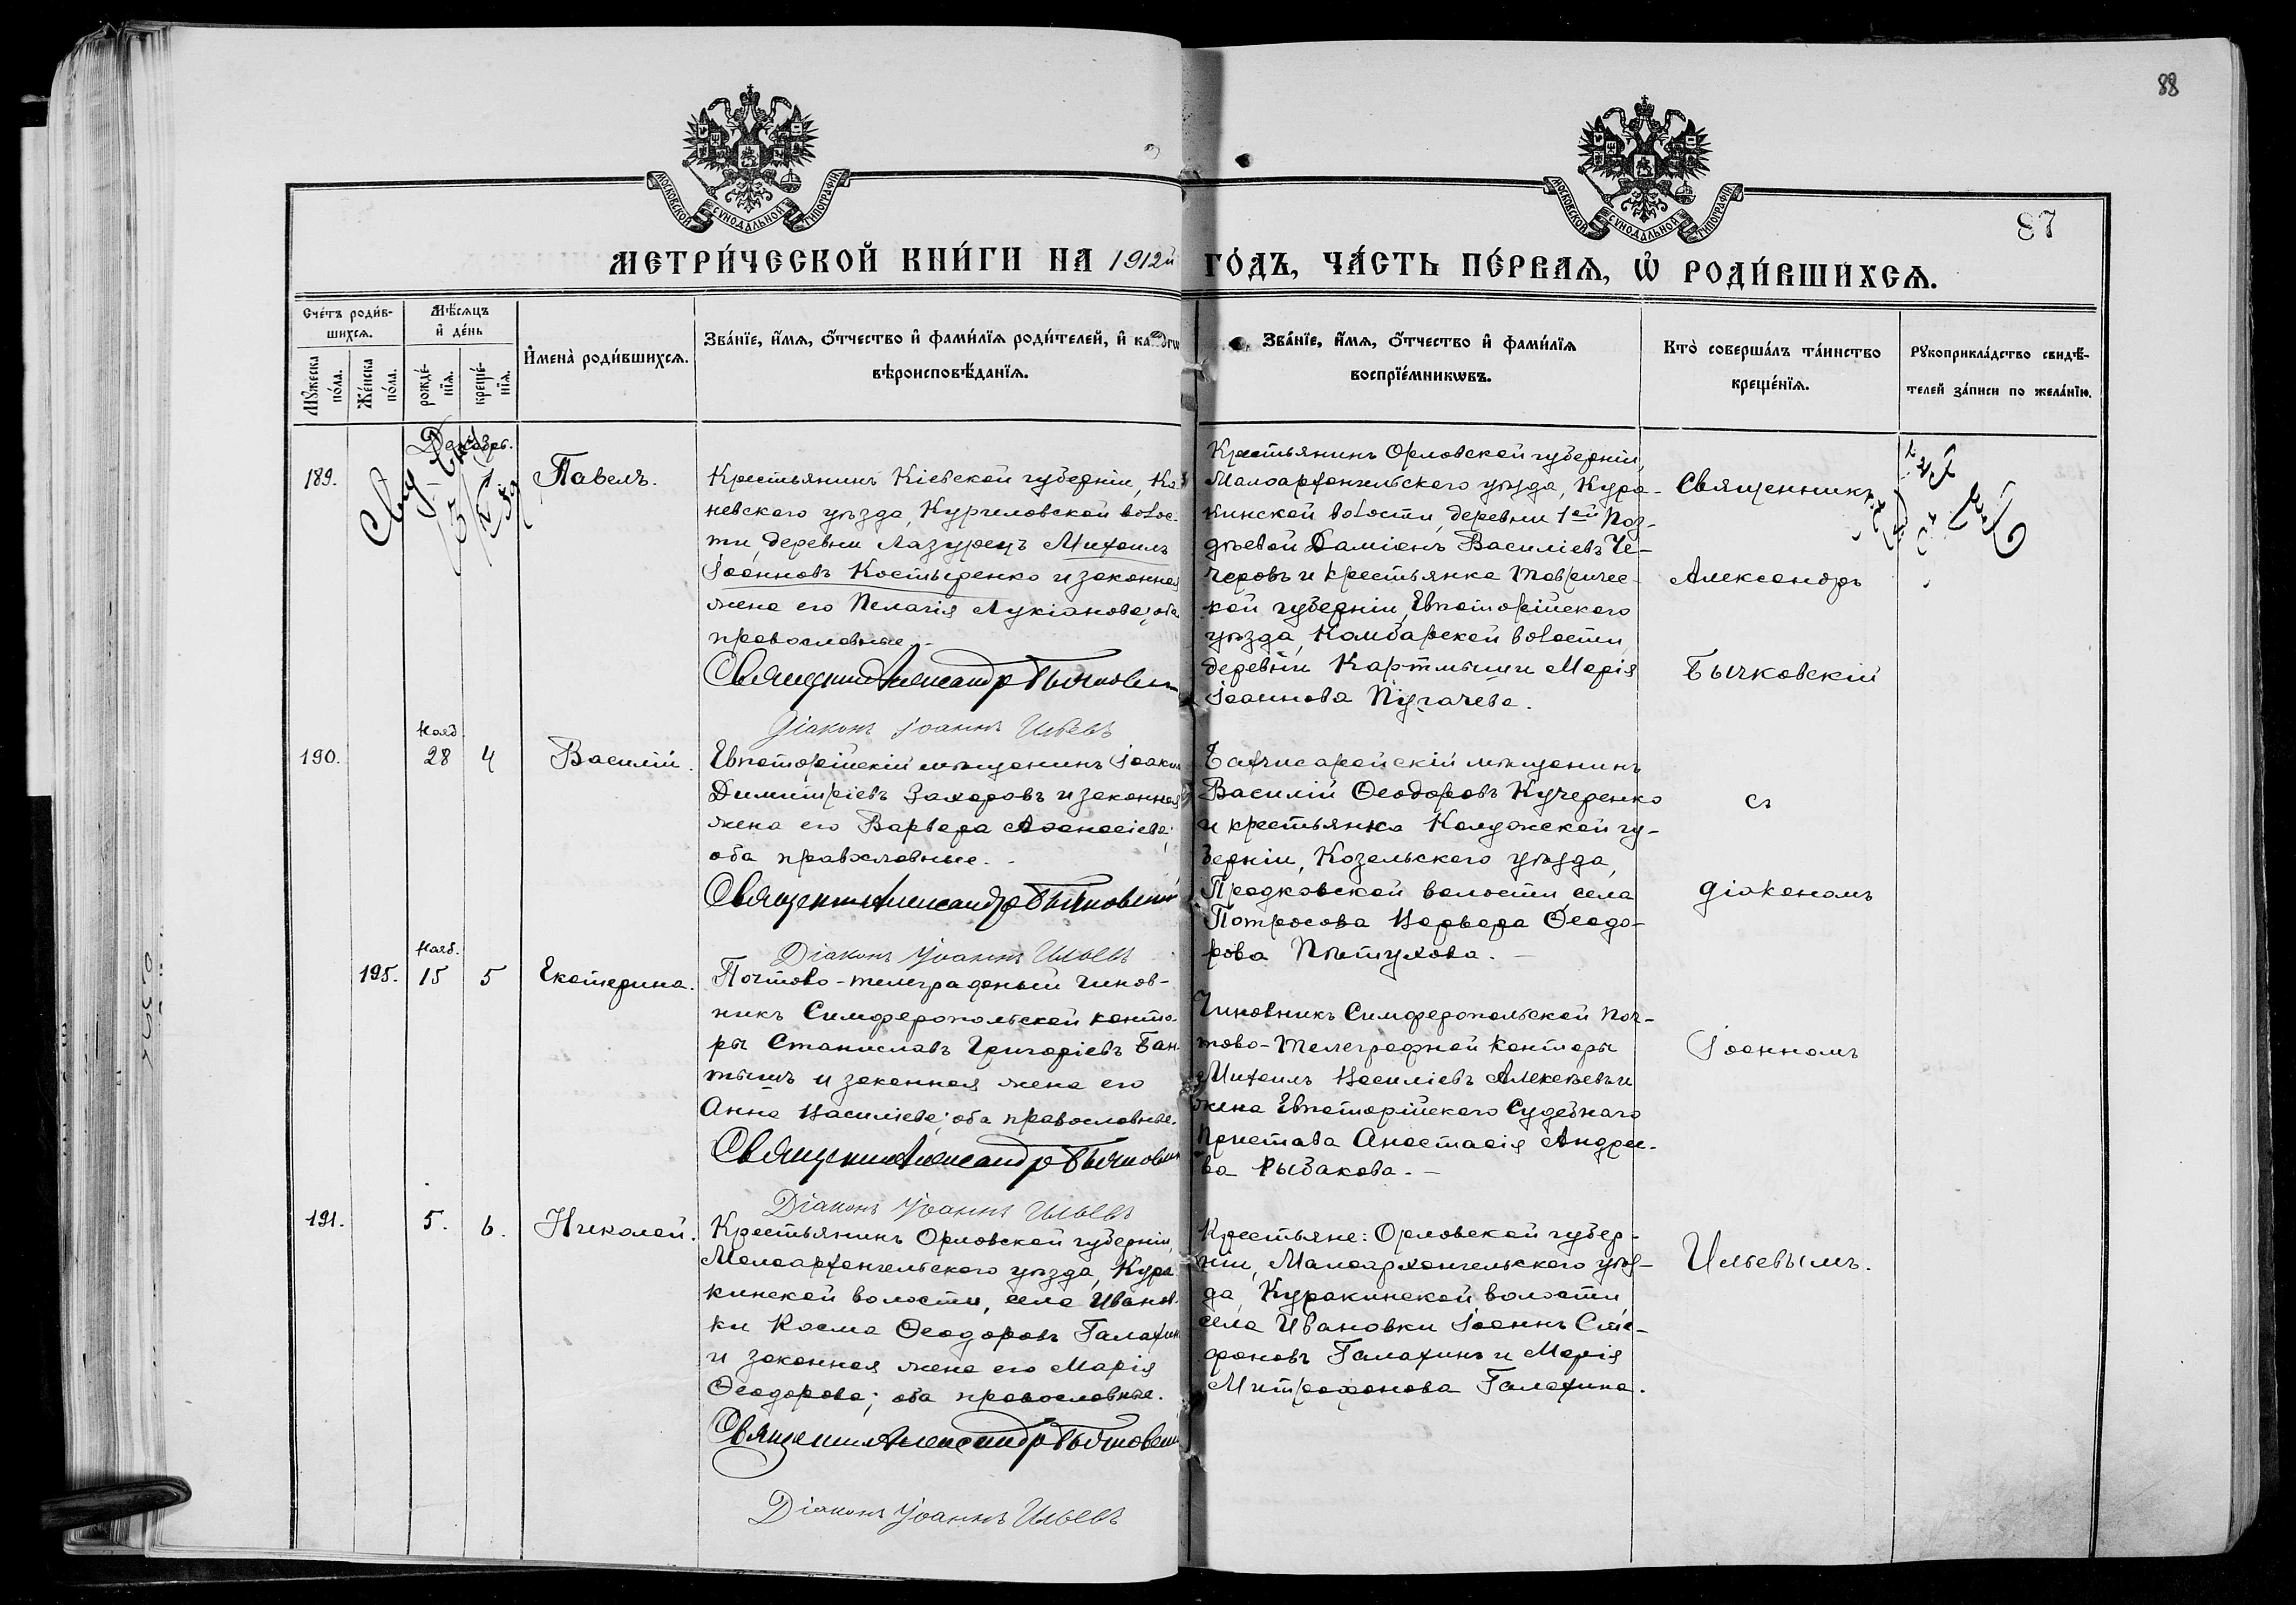 88
87
МОСКОВСКОЙ СѴНОДАЛЬНОЙ ТИПОГРАФІИ
МОСКОВСКОЙ СѴНОДАЛЬНОЙ ТИПОГРАФІИ
МЕТРИ́ЧЕСКОЙ КНИ́ГИ НА 1912й ГО́ДЪ, ЧА́СТЬ ПЕ́РВАЯ, Ѡ҆ РОДИ́ВШИХСЯ.
Сче́тъ роди́в-
шихся.
Мꙋ́жеска
по́ла.
Же́нска
по́ла.
Мѣ́сяцъ
и҆ де́нь
рожде́-
нїя.
креще́-
нїя.
И҆мена̀ роди́вшихся.
Зва́нїе, и҆́мя, ѻ҆́тчество и҆ фами́лїя роди́телей, и҆ како́гѡ
вѣроисповѣ́данїя.
Зва́нїе, и҆́мя, ѻ҆́тчество и҆ фами́лїя
воспрїе́мникѡвъ.
Кто̀ соверша́лъ та́инство
креще́нїя.
Рꙋкоприкла́дство свидѣ́-
телей за́писи по жела́нїю.
Декабрь.
189.
Павелъ.
Крестьянинъ Кіевской губерніи, Ка-
невского уѣзда, Курчиловской волос-
ти, деревни Лазурецъ Михаилъ
Іоанновъ Костыренко и законная
жена его Пелагія Лукіанова; оба
православные.-
Священникъ Александръ Бычковскій
Діаконъ Іоаннъ Ильевъ
Крестьянинъ Орловской губерніи,
Малоархангельского уѣзда, Кура-
кинской волости, деревни 1ой Поз-
дѣевой Даміанъ Василіевъ Че-
черовъ и крестьянка Тавричес-
кой губерніи, Евпаторійского
уѣзда, Камбарской волости,
деревни Картмыши Марія
Іоаннова Пугачева.
Священникъ
Александръ
Бычковскій
190.
Нояб.
28
4
Василій.
Евпаторійскій мѣщанинъ Іоаким
Димитріевъ Захаровъ и законная
жена его Варвара Афанасіева;
оба православные. -
Священникъ Александръ Бычковскій
Діаконъ Іоаннъ Ильевъ
Бахчисарайскій мѣщанинъ
Василій Ѳеодоровъ Кучеренко
и крестьянка Калужской гу-
берніи, Козельского уѣзда,
Прадковской волости, села
Потросова Варвара Ѳеодо-
рова Пѣтухова. -
съ
діакономъ
195.
Нояб.
15
5
Екатерина.
Почтово-телеграфный чинов-
никъ Симферопольской конто-
ры Станиславъ Григоріевъ Бан-
тышъ и законная жена его
Анна Василіева; оба православные.
Священникъ Александръ Бычковскій
Діаконъ Іоаннъ Ильевъ
Чиновникъ Симферопольской поч-
тово-телеграфной конторы
Михаилъ Василіевъ Алексѣевъ и
жена Евпаторійского Судебнаго
Пристава Анастасія Андрее-
ва Рыбакова. -
Іоанномъ
191.
5.
6.
Николай.
Крестьянинъ Орловской губерніи,
Малоархангельского уѣзда, Кура-
кинской волости, села Иванов-
ки Косма Ѳеодоровъ Галахин
и законная жена его Марія
Ѳеодорова; оба православные.
Священникъ Александръ Бычковскій
Діаконъ Іоаннъ Ильевъ
Крестьяне: Орловской губер-
ніи, Малоархангельского уѣз-
да, Куракинской волости,
села Ивановки Іоаннъ Сте-
фановъ Галахинъ и Марія
Митрофанова Галахина.
Ильевымъ.